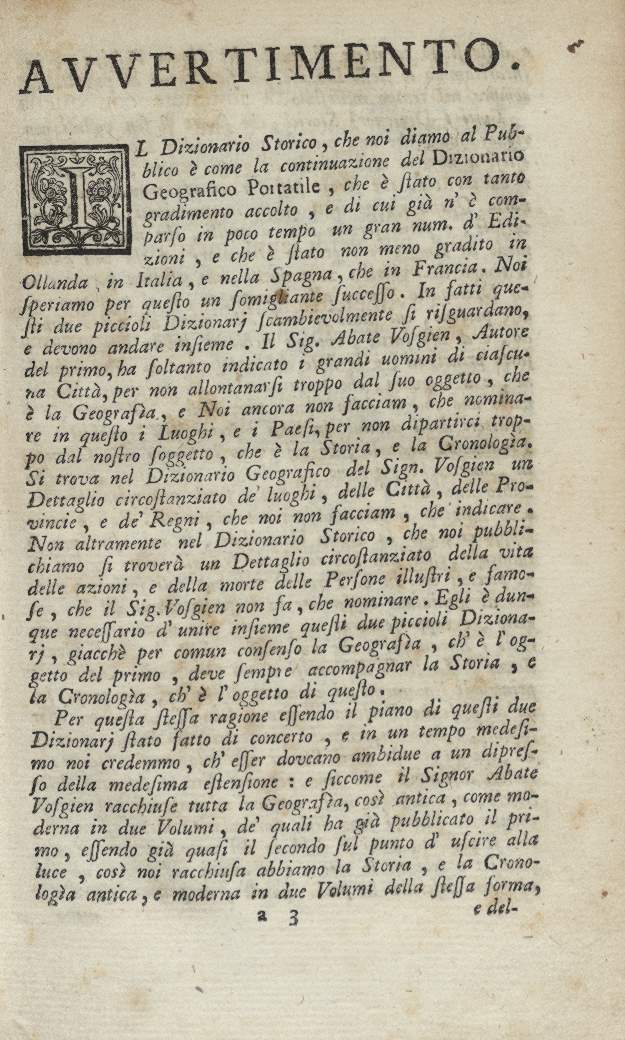 AVVERTIMENTO.
IL Dizionario Storico, che noi diamo al Pub-
blico è come la continuazione del Dizionario
Geografico Portatile, che è ſtato con tanto
gradimento accolto, e di cui già n' è com-
parſo in poco tempo un gran num. d' Edi-
zioni, e che è ſtato non meno gradito in
Ollanda, in Italia, e nella Spagna, che in Francia. Noi
ſperiamo per queſto un ſomigliante ſucceſſo. In fatti que-
ſti due piccioli Dizionarj ſcambievolmente ſi riſguardano,
e devono andare inſieme. Il Sig. Abate Voſgien, Autore
del primo, ha ſoltanto indicato i grandi uomini di ciaſcu-
na Città, per non allontanarſi troppo dal ſuo oggetto, che
è la Geografìa, e Noi ancora non facciam, che nomina-
re in queſto i Luoghi, e i Paeſi, per non dipartirci trop-
po dal noſtro ſoggetto, che è la Storia, e la Cronologìa.
Si trova nel Dizionario Geografico del Sign. Voſgien un
Dettaglio circoſtanziato de' luoghi, delle Città, delle Pro-
vincie, e de' Regni, che noi non facciam, che indicare.
Non altramente nel Dizionario Storico, che noi pubbli-
chiamo ſi troverà un Dettaglio circoſtanziato della vita
delle azioni, e della morte delle Perſone illuſtri, e famo-
ſe, che il Sig. Voſgien non fa, che nominare. Egli è dun-
que neceſſario d' unire inſieme queſti due piccioli Diziona-
rj, giacchè per comun conſenſo la Geografìa, ch' è l' og-
getto del primo, deve ſempre accompagnar la Storia, e
la Cronologìa, ch' è l' oggetto di queſto.
Per queſta ſteſſa ragione eſſendo il piano di queſti due
Dizionarj ſtato fatto di concerto, e in un tempo medeſi-
mo noi credemmo, ch' eſſer dovcano ambidue a un dipreſ-
ſo della medeſima eſtenſione: e ſiccome il Signor Abate
Voſgien racchiuſe tutta la Geografìa, così antica, come mo-
derna in due Volumi, de' quali ha già pubblicato il pri-
mo, eſſendo già quaſi il ſecondo ſul punto d' uſcire alla
luce, così noi racchiuſa abbiamo la Storia, e la Crono-
logìa antica, e moderna in due Volumi della ſteſſa forma,
a 3 e del-